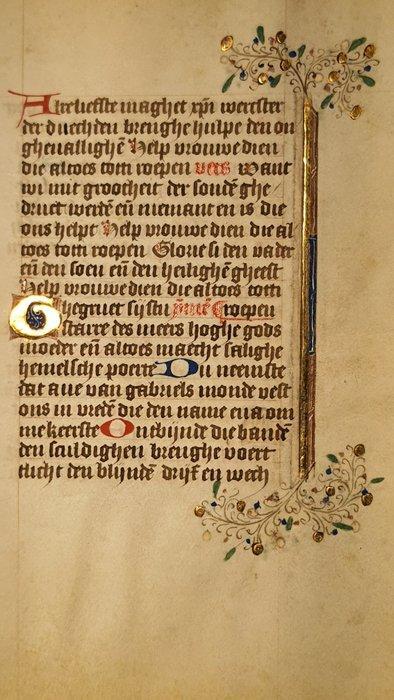 Alreliefste maghet xpi werckster
der duechden brenghe hulpe den on
ghevallighē Help vrouwe dien
die altoes tottī roepen vers Want
wi mit grootheit der sondē ghe
druct werdē eñ niemant en is die
ons helpt Help vrouwe dien die al
toes tottī roepen Glorie si den vader
eñ den soen eñ den heilighē gheest
Help vrouwe dien die altoes tottī
Ghegruet sijstu ymnē roepen
starre des meers hoghe gods
moeder eñ altoes maecht salighe
hemelsche poerte Du neemste
dat ave van gabriels monde vest
ons in vredē die den name eva om
mekeerste Ontbijnde die bandē
den sculdighen brenghe voert
tlicht den blijndē drijf en wech